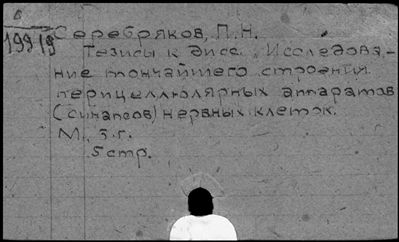 Б
19919
Серебряков, П.Н.
Тезисы к дисс. Исследова-
ние тончайшего строения
перицеллюлярных аппаратов
(синапсов) нервных клеток.
М., З. г.
5 стр.